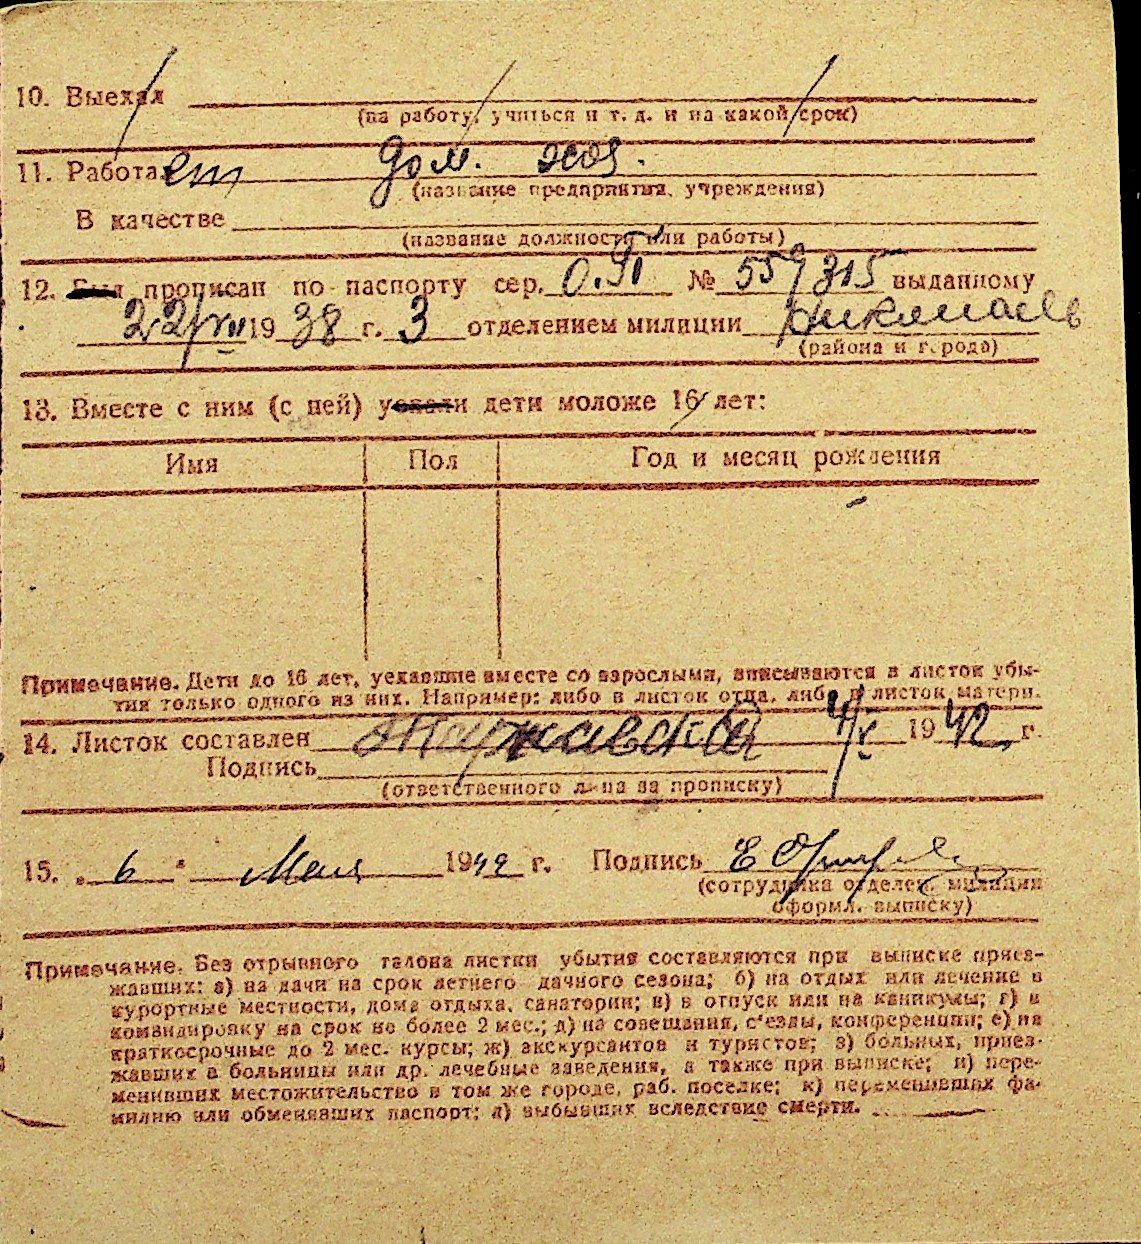 10. Выехал
(на работу, учиться и т. д. и на какой срок)
11. Работает дом. хоз.
(название предприятия, учреждения)
В качестве
(название должности или работы)
12. Был прописан по паспорту сер. № 559315 выданному
22/VII 1938 г. 3 отделением милиции Николаев
(района и города)
13. Вместе с ним (с ней) уехали дети моложе 16 лет:
Имя Пол Год и месяц рождения
Примечание. Дети до 16 лет, уехавшие вместе со взрослыми, вписываются в листок убы-
тия только одного из них. Например: либо в листок отца, либо в листок матери.
14. Листок составлен 4/V 1942 г.
Подпись
(ответственного лица за прописку)
15. „ 6 " Мая 1942 г. Подпись
(сотрудника отделен. милиции
оформл. выписку)
Примечание. Без отрывного талона листки убытия составляются при выписке приез-
жавших: а) на дачи на срок летнего дачного сезона; б) на отдых или лечение в
курортные местности, дома отдыха, санатории; в) в отпуск или на каникулы; г) в
командировку на срок не более 2 мес.; д) на совещания, с'езды, конференции; е) на
краткосрочные до 2 мес. курсы; ж) экскурсантов и туристов; з) больных, приез-
жавших в больницы или др. лечебные заведения, а также при выписке; и) пере-
менивших местожительство в том же городе, раб. поселке; к) переменивших фа-
милию или обменявших паспорт; л) выбывших вследствие смерти.